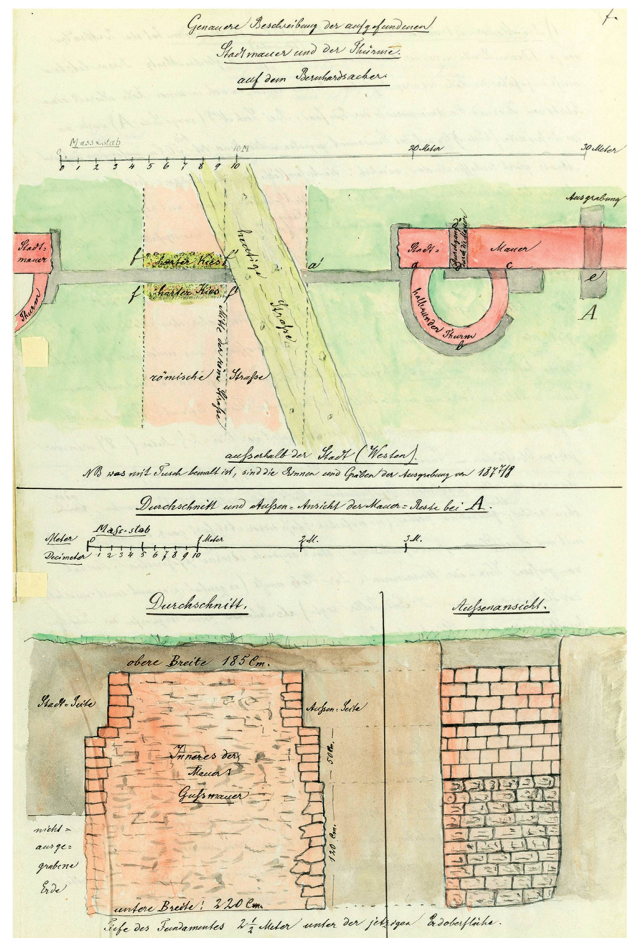 1.
Genauere Beschreibung der aufgefundenen
Stadtmauer und der Thürme
auf dem Bernhardsacker.
Massstab
10 M
20 Meter
30 Meter
0 1 2 3 4 5 6 7 8 9 10
Ausgrabung
Stadt-
mauer
Thurm
f harter Kies f
f harter Kies f
heutige
Straße
a'
Stadt-
Mauer
a
c
e
A
halbrunder Thurm
b
römische Straße
außerhalb der Stadt (Westen).
NB was mit Tusch bemalt ist, sind die Rinnen und Gräben der Ausgrabung von 1877/8
Durchschnitt und Außen-Ansicht der Mauer-Reste bei A.
Mass-stab
Meter 0 1 Meter 2 M. 3 M.
Decimeter 1 2 3 4 5 6 7 8 9 10
Durchschnitt.
Außenansicht.
obere Breite 185 Cm.
Stadt-Seite
Außen-Seite
Inneres der
Mauer:
Gußmauer
50 Cm.
120 Cm.
nicht-
ausge-
grabene
Erde
untere Breite: 220 Cm.
Tiefe des Fundamentes 2 1/2 Meter unter der jetzigen Erdoberfläche.